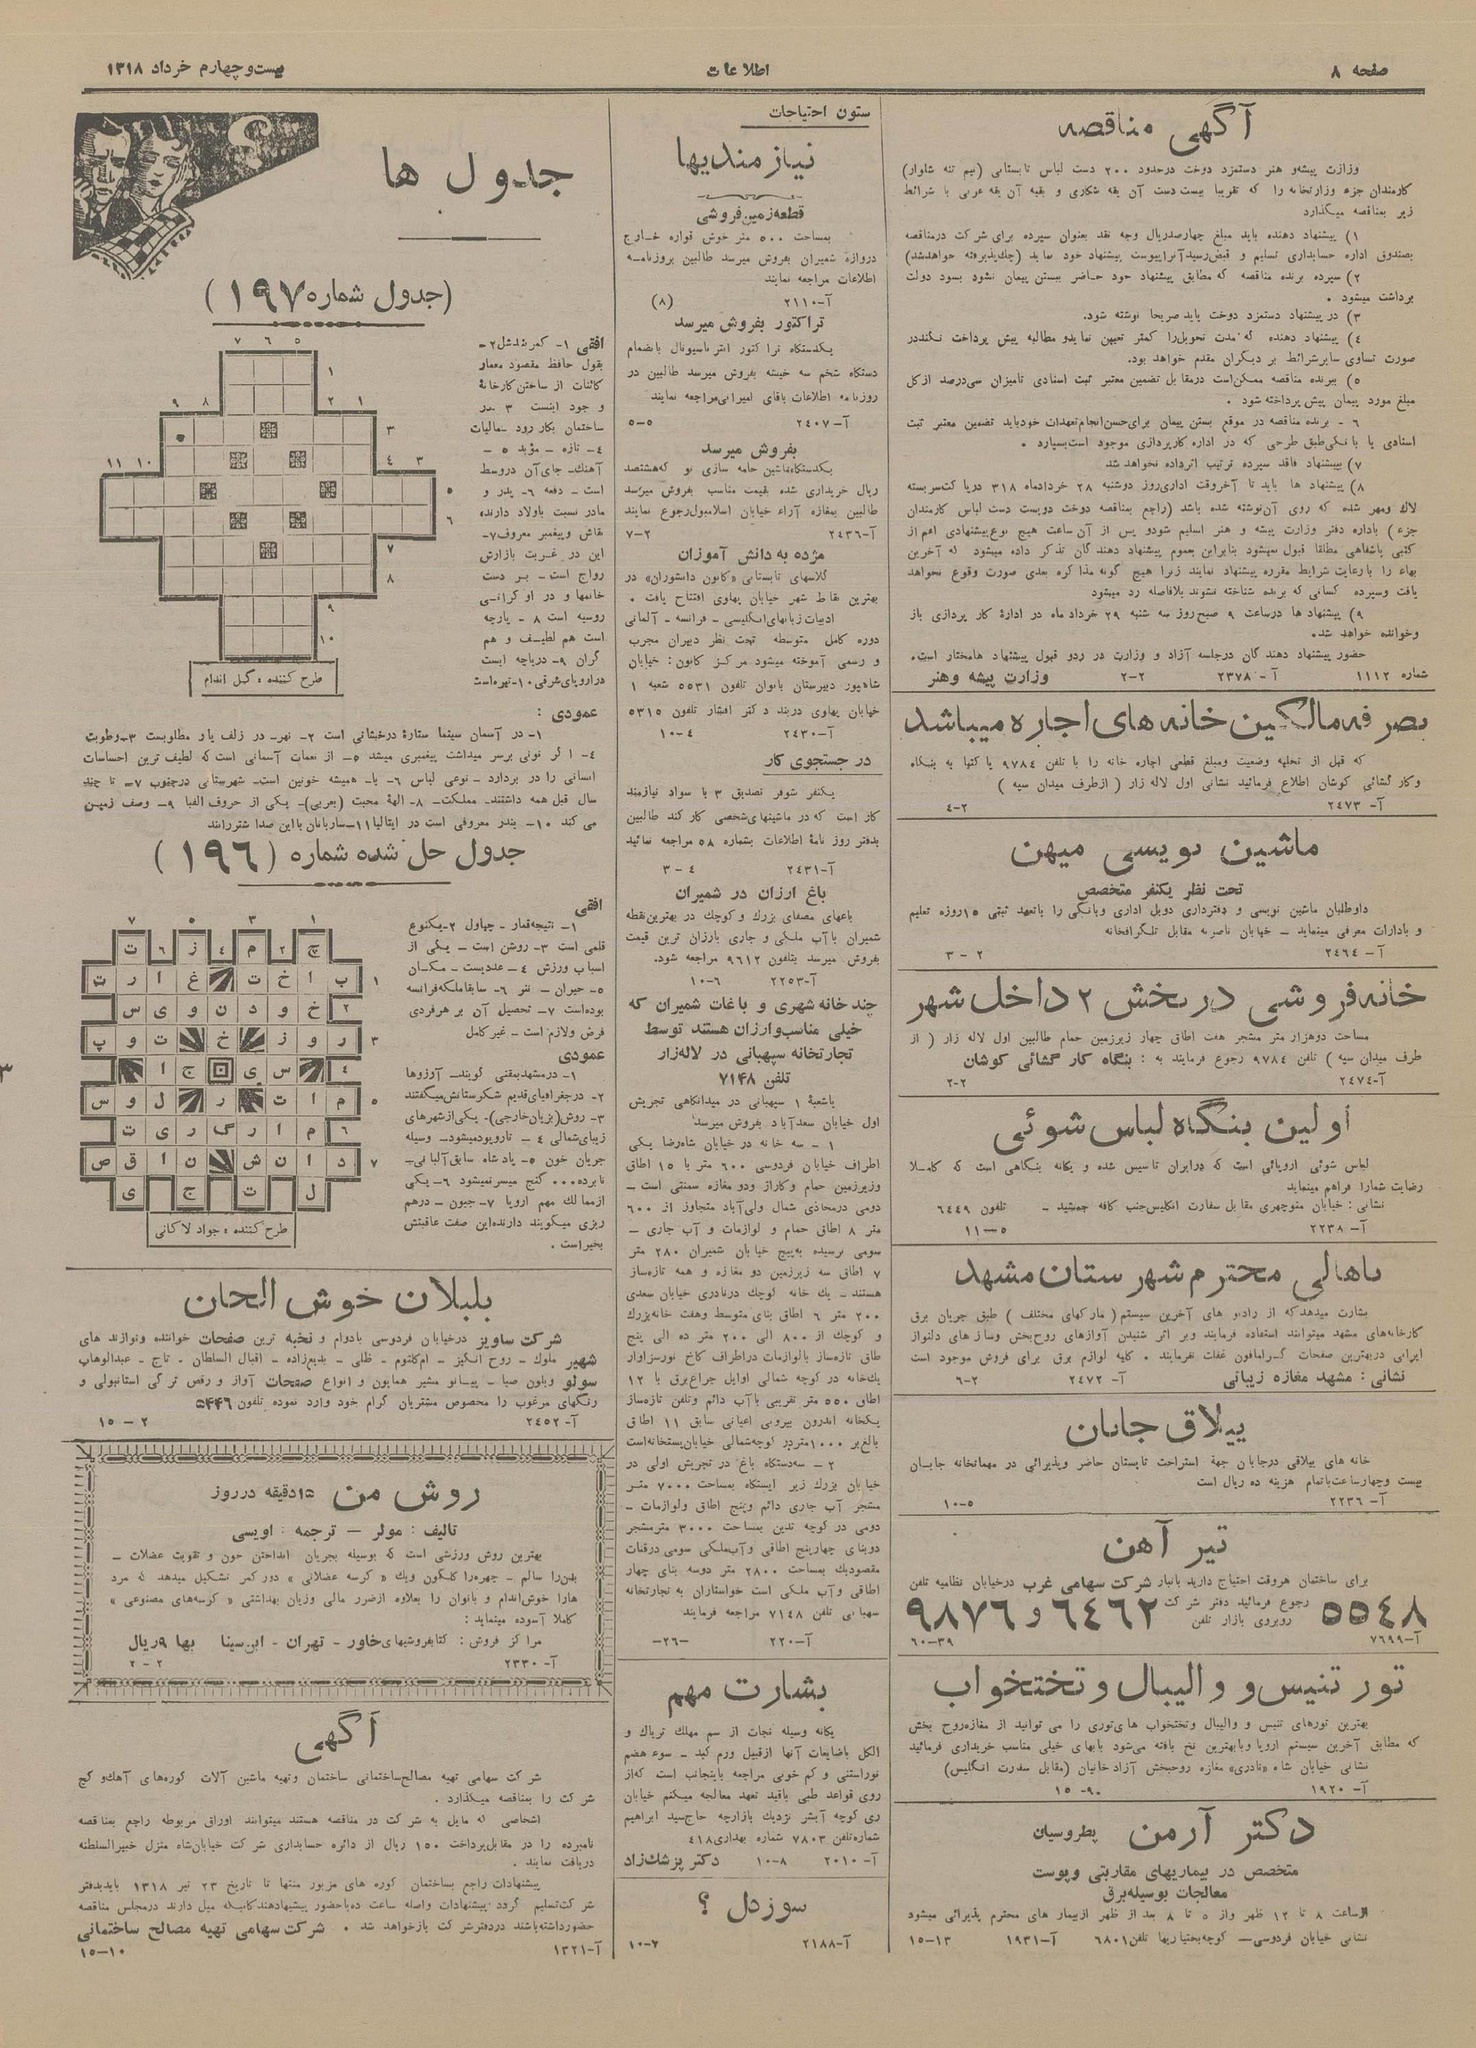 صفحه ۸
اطلاعات
بیست‌وچهارم خرداد ۱۳۱۸
آگهی مناقصه
وزارت پیشه‌و هنر دستمزد دوخت درحدود ۲۰۰ دست لباس تابستانی (نیم تنه شلوار)
کارمندان جزء وزارتخانه را که تقریبا بیست دست آن یقه شکاری و بقیه آن یقه عربی با شرائط
زیر بمناقصه میگذارد
۱) پیشنهاد دهنده باید مبلغ چهارصدریال وجه نقد بعنوان سپرده برای شرکت درمناقصه
بصندوق اداره حسابداری تسلیم و قبض‌رسید آنرا پیوست پیشنهاد خود نماید (چك‌پذیرفته خواهدشد)
۲) سپرده برنده مناقصه که مطابق پیشنهاد خود حاضر ببستن پیمان نشود بسود دولت
برداشت میشود .
۳) در پیشنهاد دستمزد دوخت باید صریحا نوشته شود.
۴) پیشنهاد دهنده که مدت تحویل‌را کمتر تعیین نمایدو مطالبه پیش پرداخت نکنددر
صورت تساوی سایرشرائط بر دیگران مقدم خواهد بود.
۵) ببرنده مناقصه ممکن‌است درمقابل تضمین معتبر ثبت اسنادی تامیزان سی‌درصد ازکل
مبلغ مورد پیمان پیش پرداخته شود .
۶ - برنده مناقصه در موقع بستن پیمان برای‌حسن‌انجام‌تعهدات خودباید تضمین معتبر ثبت
اسنادی یا بانکی‌طبق طرحی که در اداره کارپردازی موجود است‌بسپارد .
۷) بپیشنهاد فاقد سپرده ترتیب اثرداده نخواهد شد
۸) پیشنهاد ها باید تا آخروقت اداری‌روز دوشنبه ۲۸ خردادماه ۳۱۸ درپاکت‌سربسته
لاك ومهر شده که روی آن‌نوشته شده باشد (راجع بمناقصه دوخت دویست دست لباس کارمندان
جزء) باداره دفتر وزارت پیشه و هنر تسلیم شودو پس از آن ساعت هیچ نوع‌پیشنهادی اعم‌از
کتبی یاشفاهی مطلقا قبول نمیشود بنابراین بعموم پیشنهاد دهندگان تذکر داده میشود که آخرین
بهاء را بارعایت شرایط مقرره پیشنهاد نمایند زیرا هیچ گونه مذاکره بعدی صورت وقوع نخواهد
یافت وسپرده کسانی که برنده شناخته نشوند بلافاصله رد میشود
۹) پیشنهاد ها درساعت ۹ صبح‌روز سه شنبه ۲۹ خرداد ماه در ادارهٔ کار پردازی باز
وخوانده خواهد شد.
حضور پیشنهاد دهندگان درجلسه آزاد و وزارت در ردو قبول پیشنهاد هامختار است.
شماره ۱۱۱۲ آ-۲۳۷۸ ۲-۲ وزارت پیشه وهنر
بصرفه‌مالکین‌خانه‌های‌اجاره‌میباشد
که قبل از تخلیه وضعیت ومبلغ قطعی اجاره خانه را با تلفن ۹۷۸۴ یا کتبا به بنگاه
وکار گشائی کوشان اطلاع فرمائید نشانی اول لاله زار (ازطرف میدان سپه)
آ-۲۴۷۳ ۲-۴
ماشین نویسی میهن
تحت نظر یکنفر متخصص
داوطلبان ماشین نویسی و دفترداری دوبل اداری وبانکی را باتعهد ثبتی ۱۵روزه تعلیم
و بادارات معرفی مینماید – خیابان ناصریه مقابل تلگرافخانه
آ-۲۴۶۴ ۲ - ۳
خانه‌فروشی دربخش ۲ داخل شهر
مساحت دوهزار متر مشجر هفت اطاق چهار زیرزمین حمام طالبین اول لاله زار ( از
طرف میدان سپه ) تلفن ۹۷۸۴ رجوع فرمایند به : بنگاه کار گشائی کوشان
آ-۲۴۷۴ ۲-۲
اولین بنگاه لباس شوئی
لباس شوئی اروپائی است که درایران تاسیس شده و یگانه بنگاهی است که کاملا
رضایت شمارا فراهم مینماید
نشانی : خیابان منوچهری مقابل سفارت انگلیس‌جنب کافه جمشید - تلفون ۶۴۴۹
آ-۲۲۳۸ ۵-۱۱
باهالی محترم‌شهرستان‌مشهد
بشارت میدهدکه از رادیو های آخرین سیستم ( مارکهای مختلف ) طبق جریان برق
کارخانه‌های مشهد میتوانند استفاده فرمایند وبر اثر شنیدن آوازهای روح‌بخش وسازهای دلنواز
ایرانی دربهترین صفحات گرامافون غفلت نفرمایند . کلیه لوازم برق برای فروش موجود است
نشانی : مشهد مغازه زیبائی آ-۲۴۷۲ ۲-۶
ییلاق جابان
خانه های ییلاقی درجابان جههٔ استراحت تابستان حاضر وپذیرائی در مهمانخانه جابان
بیست وچهارساعت‌باتمام هزینه ده ریال است
آ-۲۲۳۶ ۵-۱۰
تیر آهن
برای ساختمان هروقت احتیاج دارید بانبار شرکت سهامی غرب درخیابان نظامیه تلفن
۵۵۴۸ رجوع فرمائید دفتر شرکت روبروی بازار تلفن ۶۴۶۲ و ۹۸۷۶
آ-۷۶۹۹ ۳۹-۶۰
تور تنیس و والیبال وتختخواب
بهترین تورهای تنیس و والیبال وتختخواب های‌توری را می توانید از مغازه‌روح بخش
که مطابق آخرین سیستم اروپا وبابهترین نخ بافته می‌شود ببهای خیلی مناسب خریداری فرمائید
نشانی خیابان شاه «نادری» مغازه روحبخش آزاد خانیان (مقابل سفرت انگلیس)
آ-۱۹۲۰ ۹-۱۵
دکتر آرمن پطروسیان
متخصص در بیماریهای مقاربتی وپوست
معالجات بوسیله‌برق
ازساعت ۸ تا ۱۲ ظهر واز ۵ تا ۸ بعد از ظهر ازبیمار های محترم پذیرائی میشود
نشانی خیابان فردوسی – کوچه‌بختیاریها تلفن ۶۸۰۱ آ-۱۹۳۱ ۱۳-۱۵
ستون احتیاجات
نیازمندیها
قطعه‌زمین‌فروشی
بمساحت ۵۰۰ متر خوش قواره خارج
دروازه شمیران بفروش میرسد طالبین بروزنامه
اطلاعات مراجعه نمایند
آ-۲۱۱۰ (۸)
تراکتور بفروش میرسد
یکدستگاه تراکتور انترناسیونال بانضمام
دستگاه شخم سه خیشه بفروش میرسد طالبین در
روزنامه اطلاعات باقای امیرانی‌مراجعه نمایند
آ-۲۴۰۷ ۵-۵
بفروش میرسد
یکدستگاه‌ماشین جامه سازی نو که‌هشتصد
ریال خریداری شده بقیمت مناسب بفروش میرسد
طالبین بمغازه آراء خیابان اسلامبول‌رجوع نمایند
آ-۲۴۳۶ ۲-۷
مژده به دانش آموزان
کلاسهای تابستانی «کانون دانشوران» در
بهترین نقاط شهر خیابان پهلوی افتتاح یافت .
ادبیات زبانهای‌انگلیسی - فرانسه - آلمانی
دوره کامل متوسطه تحت نظر دبیران مجرب
و رسمی آموخته میشود مرکز کانون: خیابان
شاهپور دبیرستان بانوان تلفون ۵۵۳۱ شعبه ۱
خیابان پهلوی دربند دکتر افشار تلفون ۵۳۱۵
آ-۲۴۳۰ ۴-۱۰
در جستجوی کار
یکنفر شوفر تصدیق ۳ با سواد نیازمند
کار است که در ماشینهای‌شخصی کار کند طالبین
بدفتر روز نامهٔ اطلاعات بشماره ۵۸ مراجعه نمائید
آ-۲۴۳۱ ۴ - ۳
باغ ارزان در شمیران
باغهای مصفای بزرك و کوچك در بهترین‌نقطه
شمیران باآب ملکی و جاری بارزان ترین قیمت
بفروش میرسد بتلفون ۹۶۱۲ مراجعه شود.
آ-۲۲۵۳ ۶-۱۰
چند خانه شهری و باغات شمیران که
خیلی مناسب‌وارزان هستند توسط
تجارتخانه سپهبانی در لاله‌زار
تلفن ۷۱۴۸
یاشعبهٔ ۱ سپهبانی در میدانگاهی تجریش
اول خیابان سعدآباد بفروش میرسد
۱ - سه خانه در خیابان شاه‌رضا یکی
اطراف خیابان فردوسی ۶۰۰ متر با ۱۵ اطاق
وزیرزمین حمام وگاراژ ودو مغازه سمنتی است –
دومی درمحاذی شمال ولی‌آباد متجاوز از ۶۰۰
متر ۸ اطاق حمام و لوازمات و آب جاری –
سومی نرسیده به‌پیچ خیابان شمیران ۲۸۰ متر
۷ اطاق سه زیرزمین دو مغازه و همه تازه‌ساز
هستند – یك خانه کوچك درنادری خیابان سعدی
۲۰۰ متر ۶ اطاق بنای متوسط وهفت خانه‌بزرك
و کوچك از ۸۰۰ الی ۲۰۰ متر ده الی پنج
طاق تازه‌ساز بالوازمات دراطراف کاخ نورسزاوار
یك‌خانه در کوچه شمالی اوایل چراغ‌برق با ۱۲
اطاق ۵۵۰ متر تقریبی باآب دائم وتلفن تازه‌ساز
یکخانه اندرون بیرونی اعیانی سابق ۱۱ اطاق
بالغ‌بر ۱۰۰۰متردر کوچه‌شمالی خیابان‌پستخانه‌است
۲ – سه‌دستگاه باغ در تجریش اولی در
خیابان بزرك زیر ایستگاه بمساحت ۷۰۰۰ متر
مشجر آب جاری دائم وپنج اطاق ولوازمات –
دومی در کوچه تدین بمساحت ۳۰۰۰ مترمشجر
دوبنای چهارپنج اطاقی وآب‌ملکی سومی درقنات
مقصودبك بمساحت ۲۸۰۰ متر دوسه بنای چهار
اطاقی وآب ملکی است خواستاران به تجارتخانه
سپهبانی تلفن ۷۱۴۸ مراجعه فرمایند
آ-۲۲۰ -۲۶-
بشارت مهم
یگانه وسیله نجات از سم مهلك تریاك و
الکل باضایعات آنها ازقبیل ورم کبد – سوء هضم
نوراستنی و کم خونی مراجعه باینجانب است که‌از
روی قواعد طبی باقید تعهد معالجه میکنم خیابان
ری کوچه آبشر نزدیك بازارچه حاج‌سید ابراهیم
شماره‌تلفن ۷۸۰۳ شماره بهداری۴۱۸
آ-۲۰۱۰ ۸-۱۰ دکتر پزشك‌زاد
سوزدل ؟
آ-۲۱۸۸ ۲-۱۰
جدول ها
(جدول شماره ۱۹۷)
افقی ۱- کمر شدشل ۲-
بقول حافظ مقصود معمار
کائنات از ساختن‌کارخانهٔ
و جود اینست ۳ در
ساختمان بکار رود – مالیات
۴- تازه – مؤید ۵ –
آهنك- جای‌آن دروسط
است – دفعه ۶- پدر و
مادر نسبت باولاد دارند-
نقاش وپیغمبر معروف ۷-
این در غربت بازارش
رواج است – بر دست
خانمها و در اوکراسی
روسیه است ۸ – پارچه
است هم لطیف و هم
گران ۹- دریاچه ایست
دراروپای‌شرقی ۱۰-تیره‌است
طرح کننده : گل اندام
عمودی :
۱- در آسمان سینما ستارهٔ درخشانی است ۲- نهر- در زلف یار مطلوبست ۳-رطوبت
۴- اگر نونی برسر میداشت پیغمبری میشد ۵- از نعمات آسمانی است‌که لطیف ترین احساسات
انسانی را در بردارد – نوعی لباس ۶- پا- همیشه خونین است- شهرستانی درجنوب ۷- تا چند
سال قبل همه داشتند- مملکت- ۸- الههٔ محبت (بعربی)- یکی از حروف الفبا ۹- وصف زمین
می کند ۱۰- بندر معروفی است در ایتالیا ۱۱-ساربانان بااین صدا شتررانند
جدول حل شده شماره (۱۹۶)
افقی
۱- نتیجه‌قمار - چپاول ۲-یکنوع
قلمی است ۳- روشن است – یکی از
اسباب ورزش ۴- عددیست - مکان
۵- حیران - ننر ۶- سابقا ملکه‌فرانسه
بوده‌است ۷- تحصیل آن برهرفردی
فرض ولازم است – غیر کامل
عمودی
۱- درمشهدبمقنی گویند- آرزوها
۲- درجغرافیای‌قدیم شکرستانش‌میگفتند
۳- روش(بزبان‌خارجی)- یکی‌ازشهرهای
زیبای‌شمالی ۴- تاروپودمیشود- وسیله
جریان خون ۵- پادشاه سابق آلبانی-
نابرده... گنج میسرنمیشود ۶-یکی
ازممالك مهم اروپا ۷- جبون – درهم
ریزی میگویند دارنده‌این صفت عاقبتش
بخیراست .
طرح کننده : جواد لاکانی
بلبلان خوش الحان
شرکت ساویز درخیابان فردوسی بادوام و نخبه ترین صفحات خواننده ونوازنده های
شهیر ملوك - روح انگیز - ام‌کلثوم - ظلی - بدیع‌زاده - اقبال السلطان - تاج - عبدالوهاب
سولو ویلون صبا - پیانو مشیر همایون و انواع صفحات آواز و رقص ترکی استانبولی و
رنگهای مرغوب را مخصوص مشتریان گرام خود وارد نموده تلفون ۵۴۴۶
آ-۲۴۵۲ ۲ - ۱۵
روش من ۱۵دقیقه درروز
تالیف : مولر – ترجمه : اویسی
بهترین روش ورزشی است که بوسیله بجریان انداختن خون و تقویت عضلات –
بدن‌را سالم – چهره‌را گلگون ویك « کرسه عضلانی » دورکمر تشکیل میدهد که مرد
هارا خوش‌اندام و بانوان را بعلاوه ازضرر مالی وزیان بهداشتی « کرسه‌های مصنوعی »
کاملا آسوده مینماید :
مراکز فروش : کتابفروشیهای خاور - تهران - ابن‌سینا بها ۹ریال
آ-۲۳۳۰ ۲ - ۲
آگهی
شرکت سهامی تهیه مصالح‌ساختمانی ساختمان وتهیه ماشین آلات کوره‌های آهك‌و گچ
شرکت را بمناقصه میگذارد .
اشخاصی که مایل به شرکت در مناقصه هستند میتوانند اوراق مربوطه راجع بمناقصه
نامبرده را در مقابل‌پرداخت ۱۵۰ ریال از دائره حسابداری شرکت خیابان‌شاه منزل خبیرالسلطنه
دریافت نمایند .
پیشنهادات راجع بساختمان کوره های مزبور منتها تا تاریخ ۲۳ تیر ۱۳۱۸ بایدبدفتر
شرکت‌تسلیم گردد پیشنهادات واصله ساعت ده‌باحضور پیشنهاددهندگانیکه میل دارند درمجلس مناقصه
حضورداشته‌باشند دردفترشرکت بازخواهد شد . شرکت سهامی تهیه مصالح ساختمانی
آ-۱۳۲۱ ۱۰-۱۵